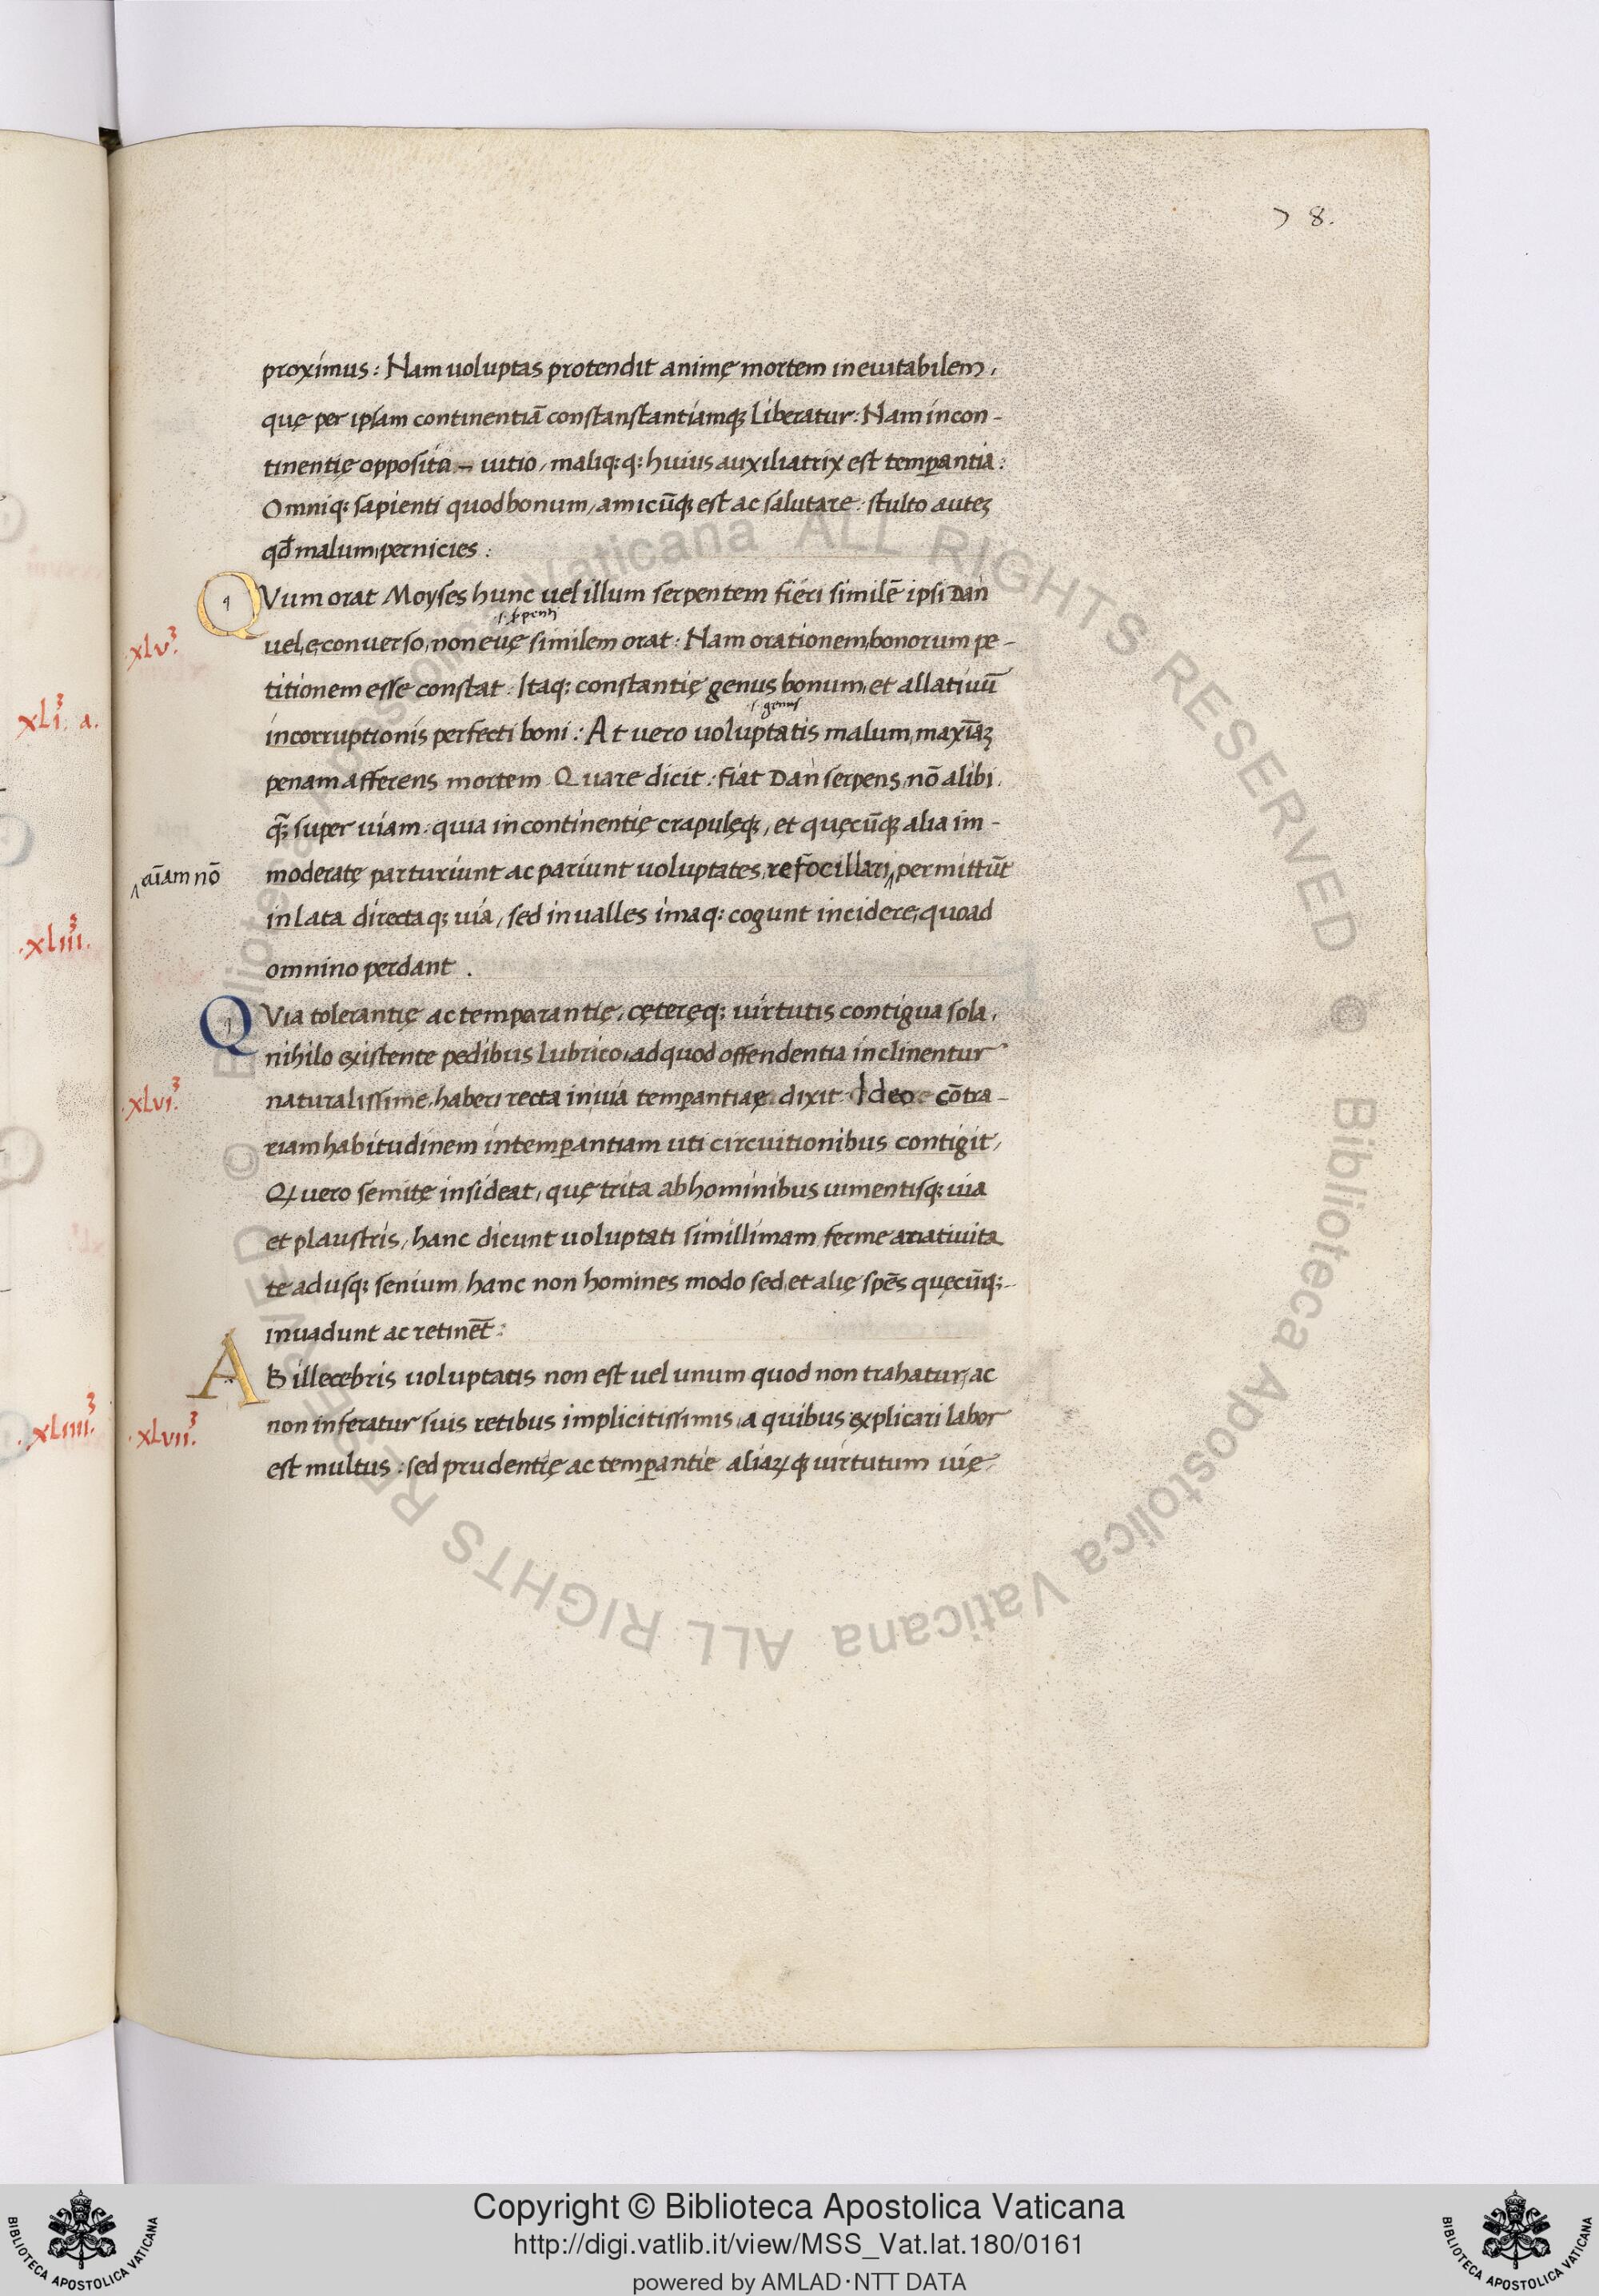 78.
proximus: Nam uoluptas protendit animę mortem ineuitabilem,
quę per ipsam continentiā constanstantiamq; liberatur: Nam incon-
tinentię opposita — uitio, maliq: q: huius auxiliatrix est temperantia:
Omniq: sapienti quod bonum, amicūq; est ac salutare: stulto autez
qđ malum, pernicies:
QVum orat Moyses hunc uel illum serpentem fieri similē ipsi Dan
.s. serpenti
xlv.
uel, e, conuerso, non euę similem orat: Nam orationem, bonorum pe-
titionem esse constat: Itaq: constantię genus bonum, et allatiuū
XLI. a.
.s. genus
incorruptionis perfecti boni: At uero uoluptatis malum, maxīaz
penam afferens mortem Quare dicit: fiat Dan serpens, nō alibi
q̄; super uiam: quia incontinentię crapulęq;, et quęcūq; alia im-
aīam nō
moderatę parturiunt ac pariunt uoluptates, refocillari, permittūt
in lata directaq; uia, sed in ualles imaq: cogunt incidere, quoad
.xliii.
omnino perdant.
QVia tolerantię ac temparantię, cętereq: uirtutis contigua sola,
nihilo existente pedibus lubrico, ad quod offendentia inclinentur
xlvi.
naturalissime, haberi recta in uia temperantiaę dixit: Ideo cōtra-
riam habitudinem intemperantiam uti circuitionibus contigit,
Q, uero semitę insideat, quę trita ab hominibus iumentisq; uia
et plaustris, hanc dicunt uoluptati simillimam, ferme a natiuita
te adusq; senium hanc non homines modo sed, et alię spēs quęcūq;
inuadunt ac retinēt:
AB illecebris uoluptatis non est uel unum quod non trahatur, ac
.xliiii.
.xlvii.
non inferatur suis retibus implicitissimis, a quibus explicari labor
est multus: sed prudentię ac temperantię aliaꝝq; uirtutum uię
Copyright © Biblioteca Apostolica Vaticana
http://digi.vatlib.it/view/MSS_Vat.lat.180/0161
powered by AMLAD·NTT DATA
BIBLIOTECA APOSTOLICA VATICANA
BIBLIOTECA APOSTOLICA VATICANA
© Biblioteca Apostolica Vaticana ALL RIGHTS RESERVED © Biblioteca Apostolica Vaticana ALL RIGHTS RESERVED